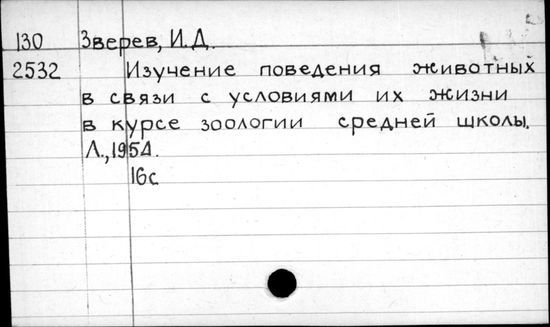 130 Зверев, И.Д.
2532 Изучение поведения животных
в связи с условиями их жизни
в курсе зоологии средней школы.
Л., 1954.
16с